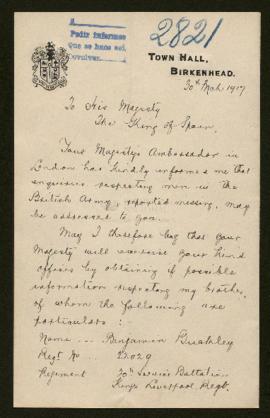 2821
A
Pedir informes
que se hace est.
Devolver.
TOWN HALL,
BIRKENHEAD.
30th Mch 1917
To His Majesty
The King of Spain,
Your Majesty's Ambassador in
London has kindly informed me that
enquiries respecting men in the
British Army, reported missing, may
be addressed to you.
May I therefore beg that your
Majesty will exercise your kind
offices by obtaining if possible
information respecting my brother,
of whom the following are
particulars:
Name ... Benjamin Buckley
Regt No ... 23029
Regiment 20th Service Battalion
King's Liverpool Regt.